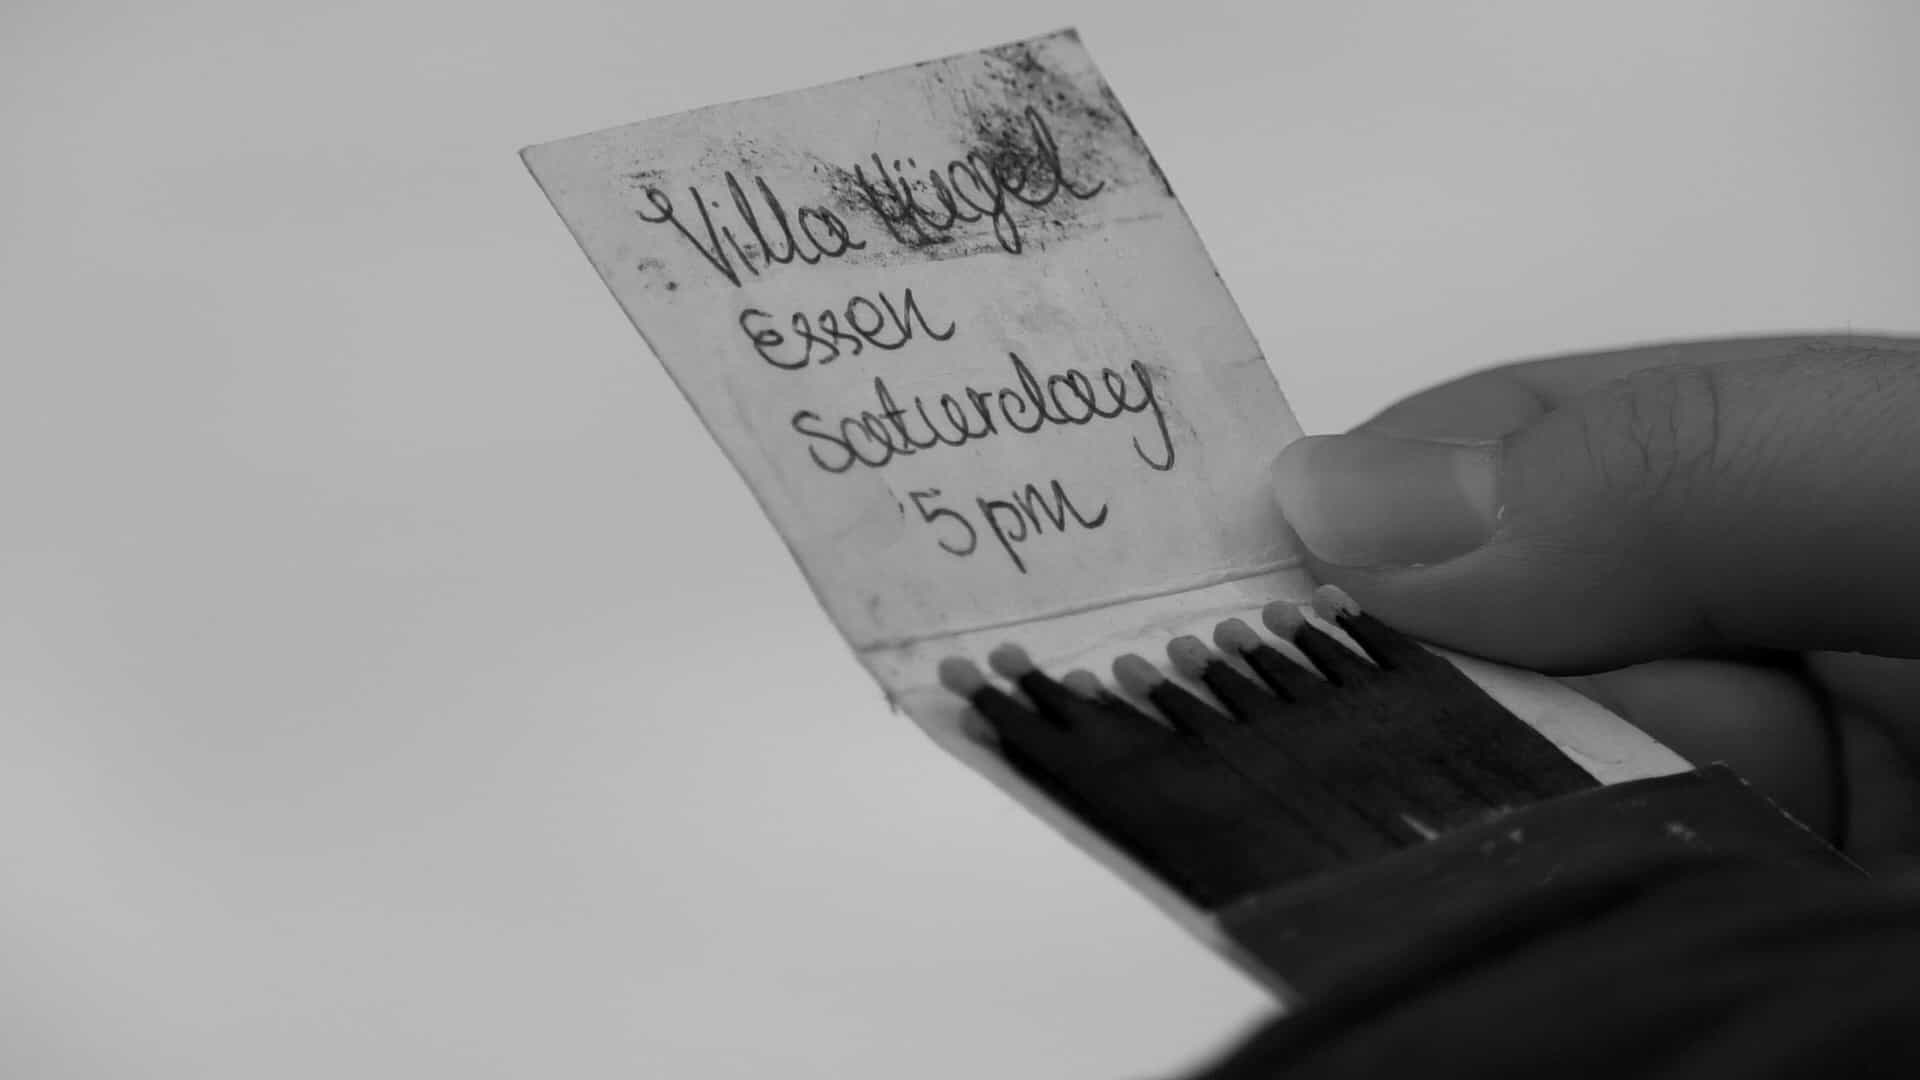 Villa Hügel
Essen
Saturday
5pm